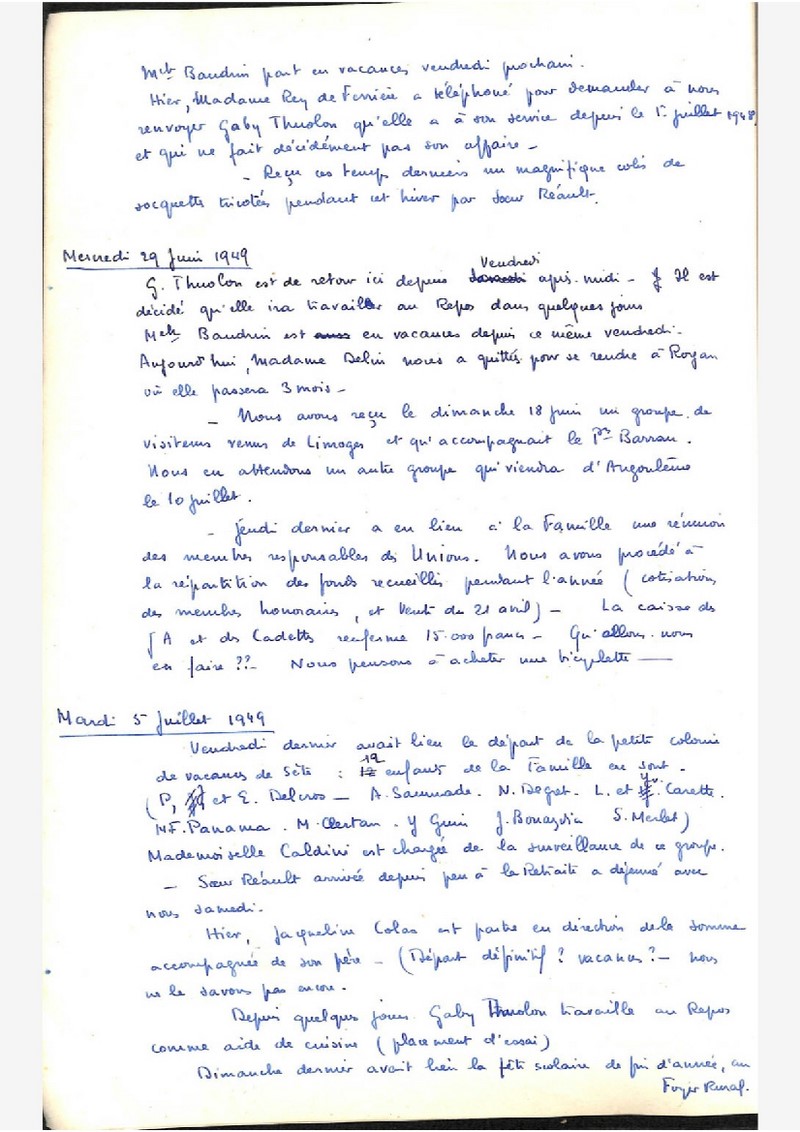 Melle Baudrin part en vacances vendredi prochain.
Hier, Madame Rey de Ferrière a téléphoné pour demander à nous
renvoyer Gaby Thuolon qu'elle a à son service depuis le 1er juillet 1948,
et qui ne fait décidément pas son affaire -
- Reçu ces temps derniers un magnifique colis de
socquettes tricotées pendant cet hiver par Sœur Réault.
Mercredi 29 Juin 1949
Vendredi
G. Thuolon est de retour ici depuis samedi après-midi - Il est
décidé qu'elle ira travailler au Repos dans quelques jours
Melle Baudrin est aussi en vacances depuis ce même vendredi.
Aujourd'hui, Madame Belin nous a quittés pour se rendre à Royan
où elle passera 3 mois -
- Nous avons reçu le dimanche 18 juin un groupe de
visiteurs venus de Limoges et qu'accompagnait le Pr Barrau.
Nous en attendons un autre groupe qui viendra d'Angoulême
le 10 juillet.
- Jeudi dernier a eu lieu à la Famille une réunion
des membres responsables des Unions. Nous avons procédé à
la répartition des fonds recueillis pendant l'année (cotisations
des membres honoraires, et Vente du 21 avril) - La caisse des
J A et des Cadettes renferme 15.000 francs - Qu'allons-nous
en faire ?? - Nous pensons à acheter une bicyclette -
Mardi 5 Juillet 1949
Vendredi dernier avait lieu le départ de la petite colonie
12
de vacances de Sète : 12 enfants de la Famille en sont -
(P, et E. Delcros - A. Saumade. N. Degret. L. et Carette.
MF. Panama. M. Clertan. Y Guin J. Bonazvia S. Merlet)
Mademoiselle Caldini est chargée de la surveillance de ce groupe.
- Sœur Réault arrivée depuis peu à la Retraite a déjeuné avec
nous samedi.
Hier, Jacqueline Colas est partie en direction de la Somme
accompagnée de son père - (Départ définitif ? vacances ? - nous
ne le savons pas encore.
Depuis quelques jours Gaby Thuolon travaille au Repos
comme aide de cuisine (placement d'essai)
Dimanche dernier avait lieu la fête scolaire de fin d'année, au
Foyer Rural.